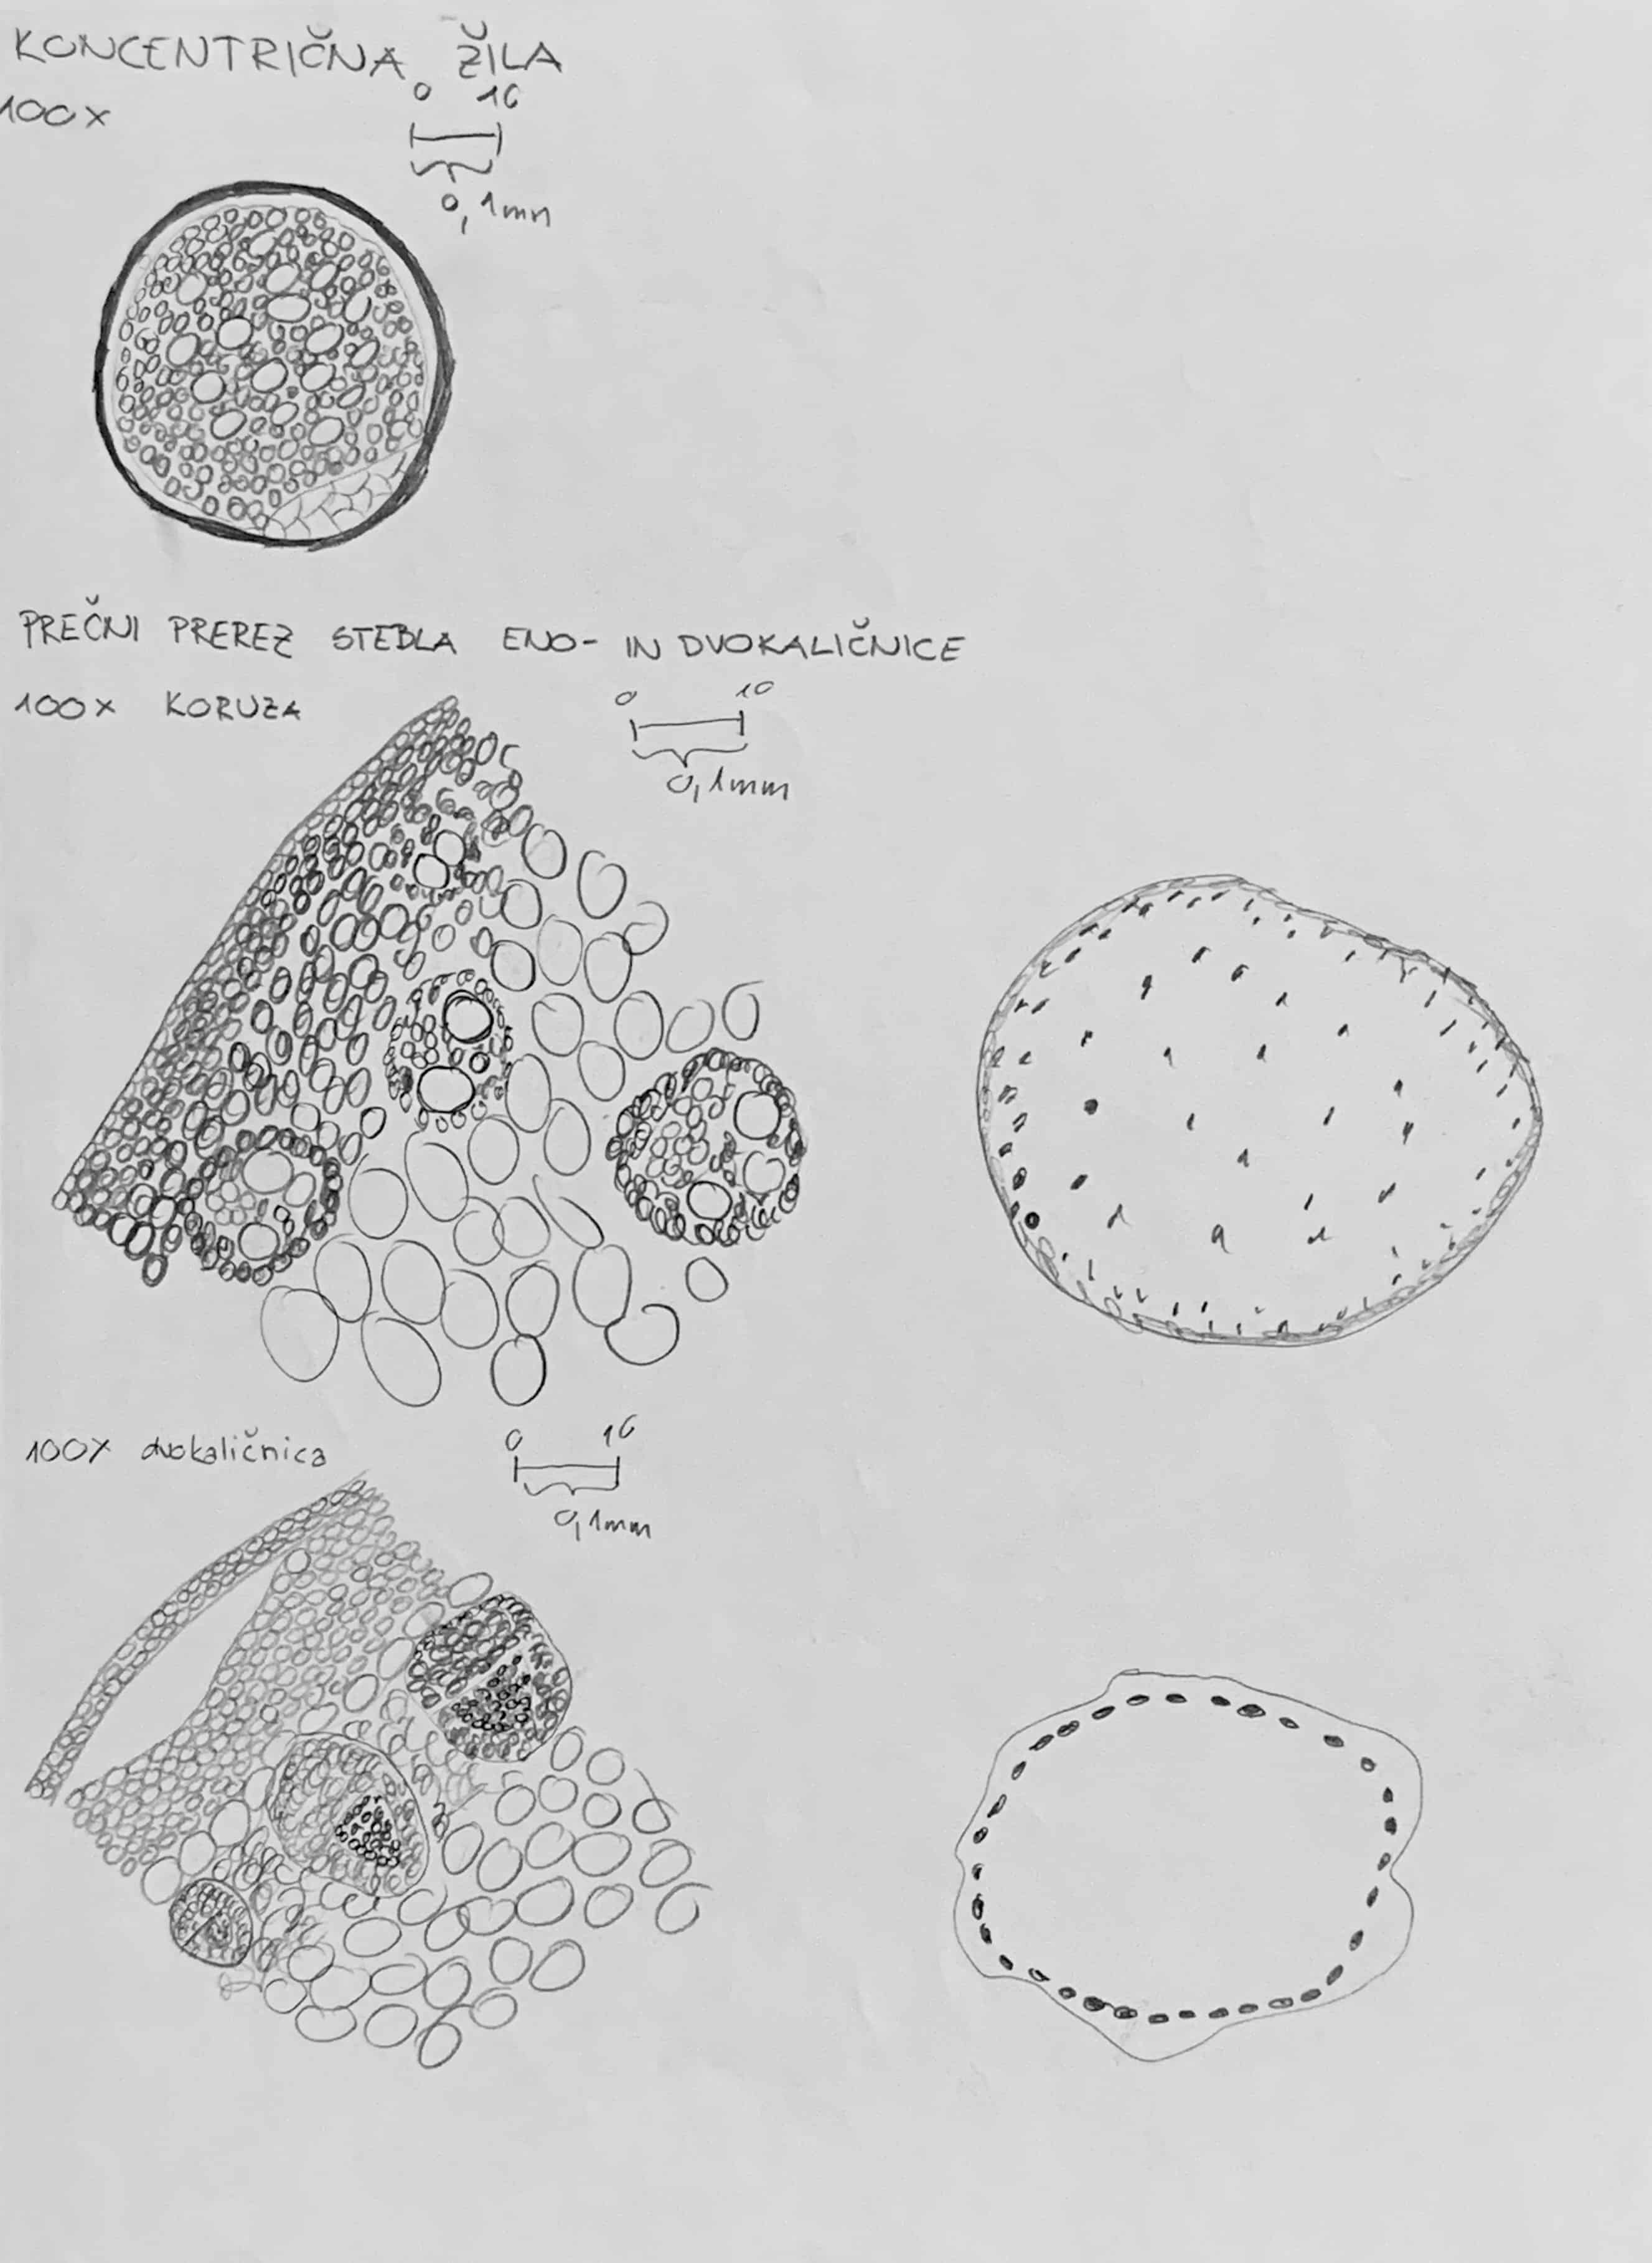 KONCENTRIČNA ŽILA
100x
0 10
0,1mm
PREČNI PREREZ STEBLA ENO- IN DVOKALIČNICE
100x KORUZA
0 10
0,1mm
100x dvokaličnica
0 10
0,1mm